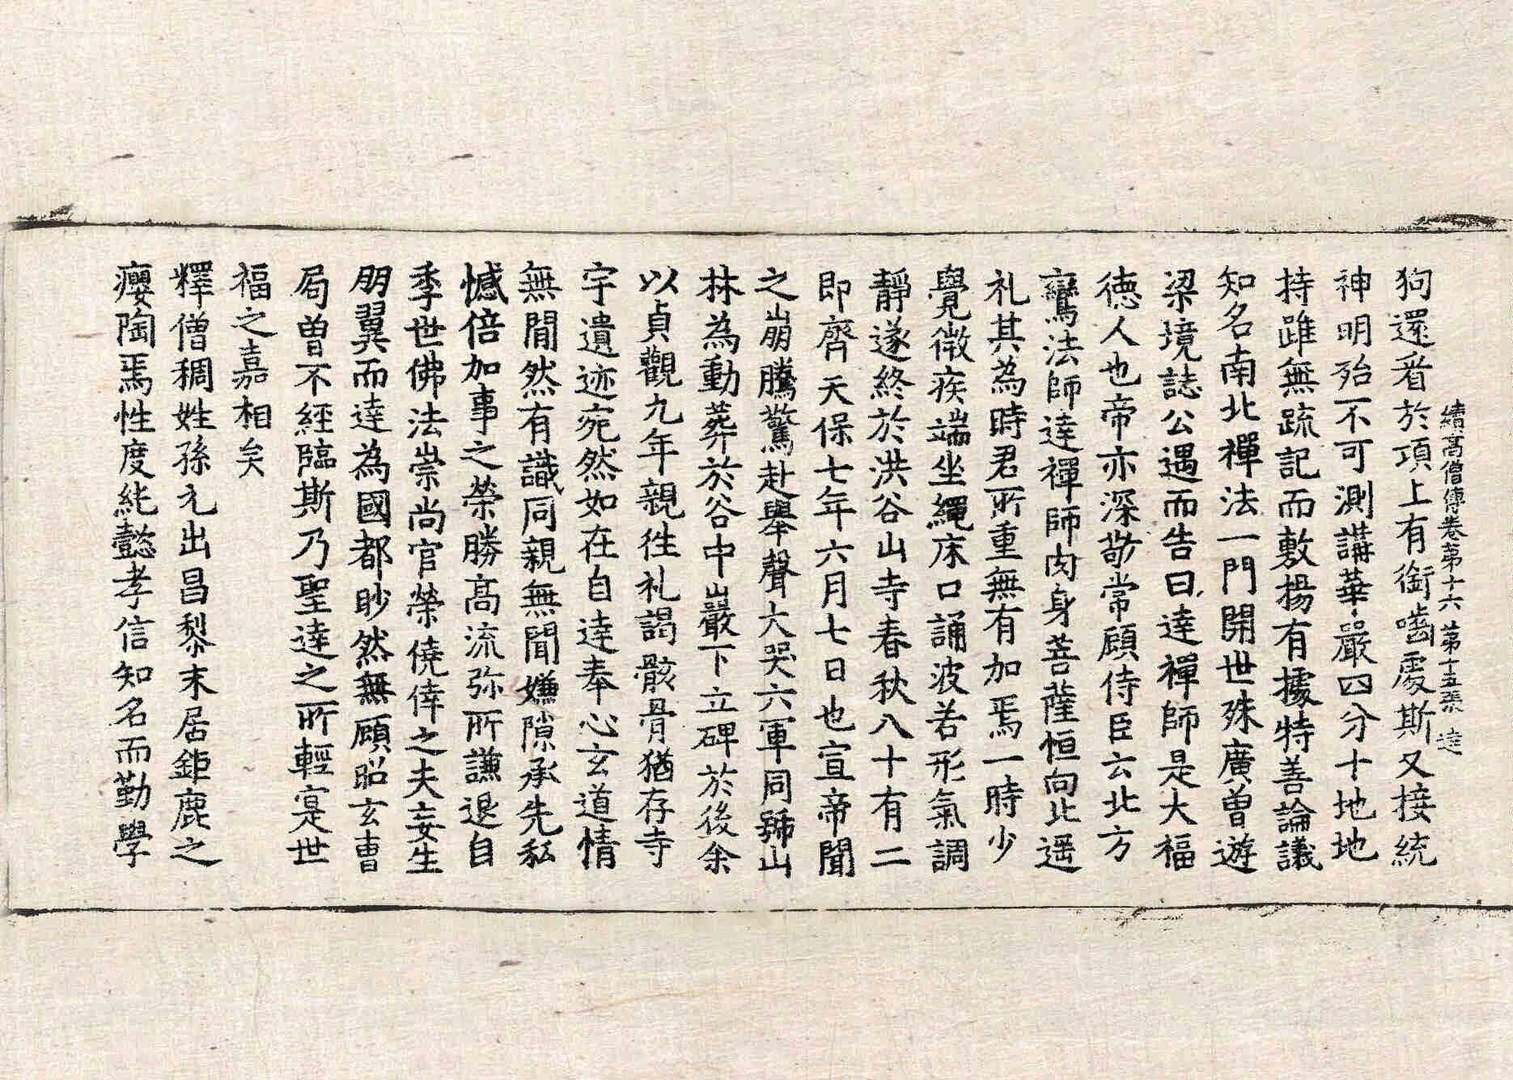 續高僧傳卷第十六 第十五張 達
狗還看於項上有銜嚙處斯又接統
神明殆不可測講華嚴四分十地地
持雖無疏記而敷揚有據特善論議
知名南北禪法一門開世殊廣曾遊
梁境誌公遇而告曰達禪師是大福
德人也帝亦深敬常顧侍臣云北方
鸞法師達禪師肉身菩薩恒向北遥
礼其為時君所重無有加焉一時少
覺微疾端坐繩床口誦波若形氣調
靜遂終於洪谷山寺春秋八十有二
即齊天保七年六月七日也宣帝聞
之崩騰驚赴舉聲大哭六軍同號山
林為動葬於谷中巖下立碑於後余
以貞觀九年親往礼謁骸骨猶存寺
宇遺迹宛然如在自達奉心玄道情
無間然有識同親無聞嫌隙承先私
憾倍加事之榮勝高流弥所謙退自
季世佛法崇尚官榮僥倖之夫妄生
朋翼而達為國都眇然無顧昭玄曹
局曾不經臨斯乃聖達之所輕寔世
福之嘉相矣
釋僧稠姓孫元出昌黎末居鉅鹿之
癭陶焉性度純懿孝信知名而勤學